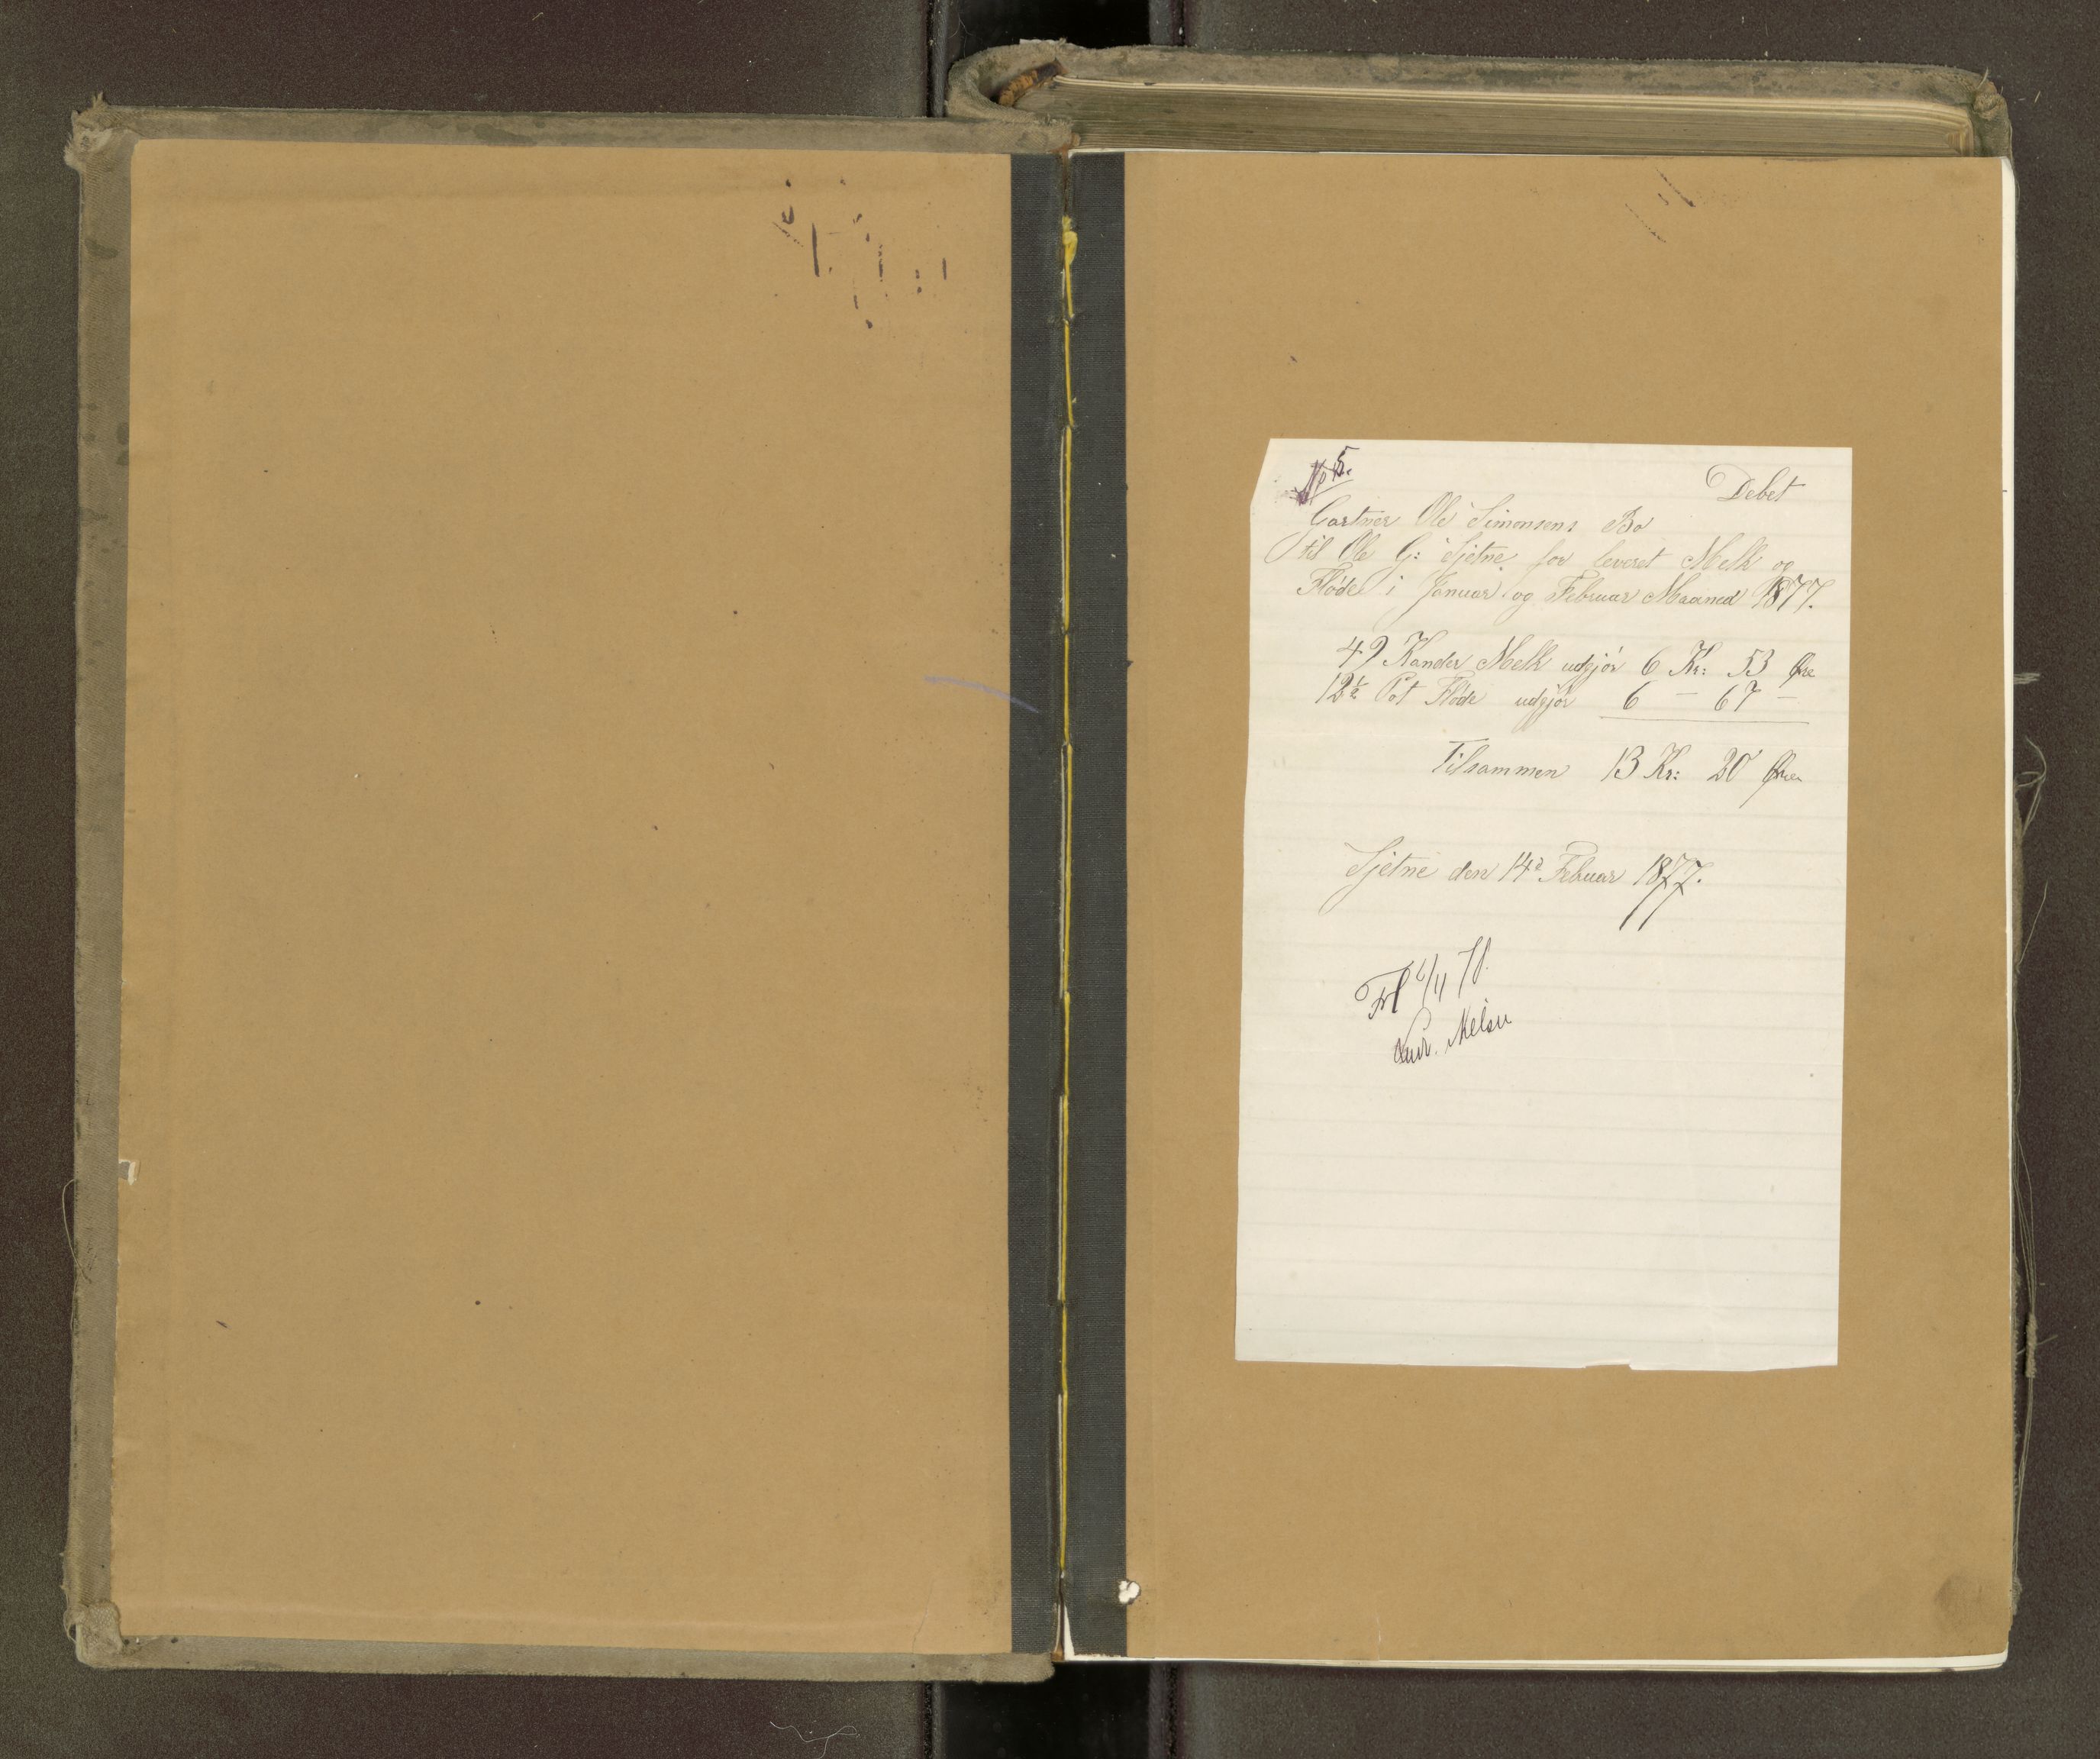 No 5.
Debet
Gartner Ole Simonsens Bo
til Ole G: Sjetne for leveret Melk og
Fløde i Januar og Februar Maaned 1877.
49 Kander Melk udgjør 6 Kr: 53 Øre
12½ Pot Fløde udgjør 6 — 67 —
Tilsammen 13 Kr: 20 Øre
Sjetne den 14d Februar 1877.
Nielsen